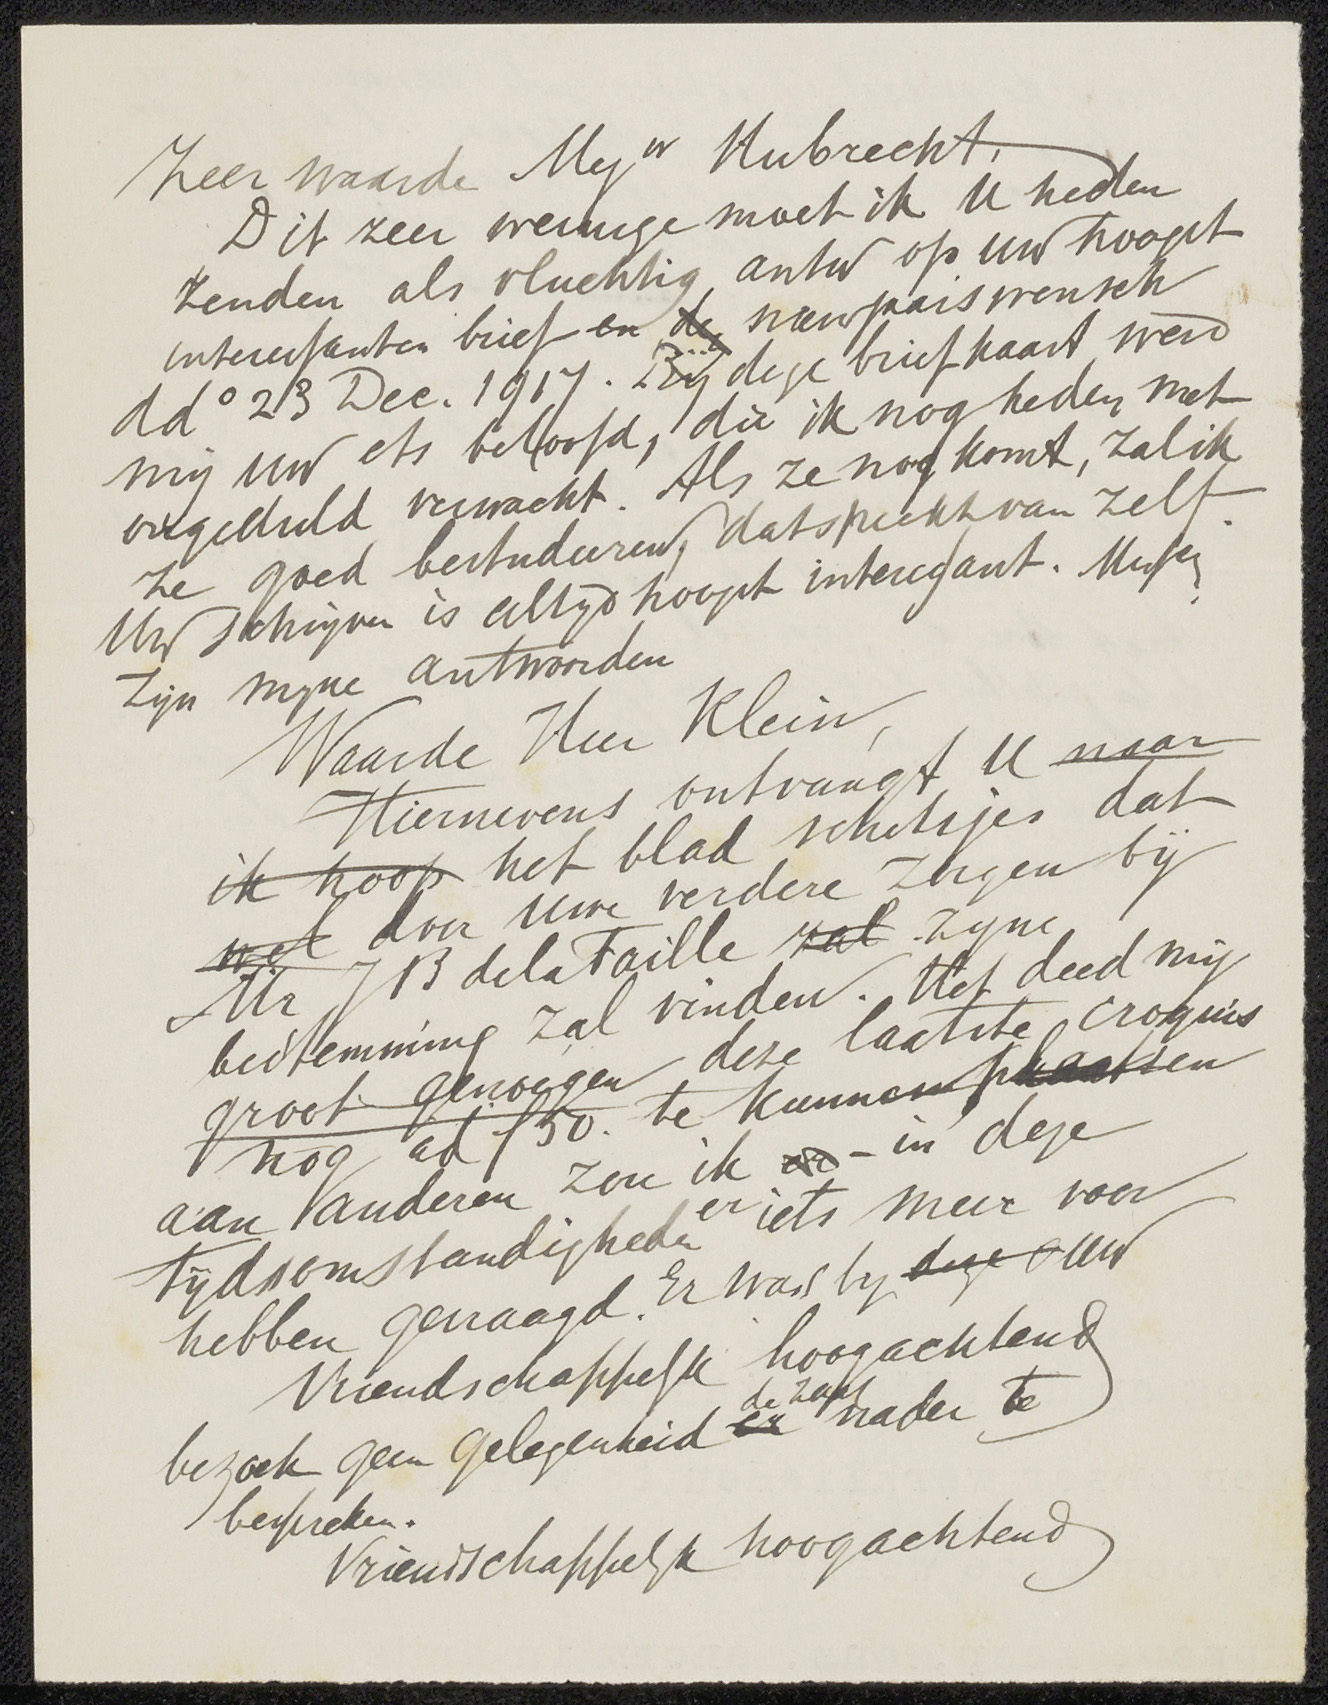 Zeer waarde Mejw Hubrecht,
Dit zeer weinige moet ik U heden
zenden als vluchtig antw op uw hoogst
interessanten brief en de nieuwjaarswensch
dd° 23 Dec. 1917. Bij deze briefkaart werd
mij uw ets beloofd, die ik nog heden met
ongeduld verwacht. Als ze nog komt, zal ik
ze goed bestudeeren, dat spreekt van zelf.
Uw schrijven is altijd hoogst interessant.
zijn mijne antwoorden
Waarde Heer Klein,
Hiernevens ontvangt U naar
ik hoop het blad schetsjes dat
wel door uwe verdere zorgen bij
Mr J B de la Faille zal zijne
bestemming zal vinden. Het deed mij
groot genoegen deze laatste croquis
nog ad f 50. te kunnen plaatsen
aan anderen zou ik - in deze
tijdsomstandigheden er iets meer voor
hebben gevraagd. Er was bij deze uw
Vriendschappelijk hoogachtend
bezoek geen gelegenheid er de zaak nader te
bespreken.
Vriendschappelijk hoogachtend